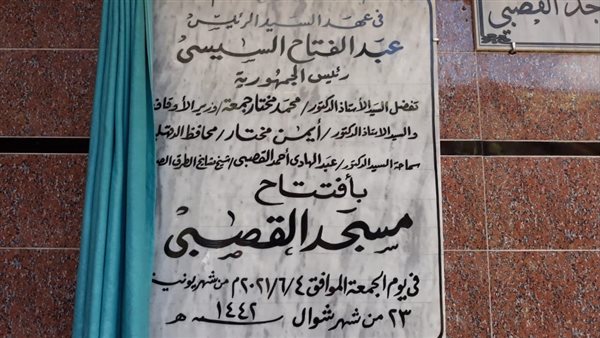 فى عهد السيد الرئيس
عبد الفتاح السيسى
رئيس الجمهورية
تفضل السيد الأستاذ الدكتور/ محمد مختار جمعة/ وزير الأوقاف
والسيد الأستاذ الدكتور/ أيمن مختار/ محافظ
سماحة السيد الدكتور/ عبد الهادى أحمد القصبى/ شيخ مشايخ الطرق
بأفتتاح
مسجد القصبى
فى يوم الجمعة الموافق ٢٠٢١/٦/٤م من شهر يونية
٢٣ من شهر شوال ١٤٤٢ هـ
القصبى